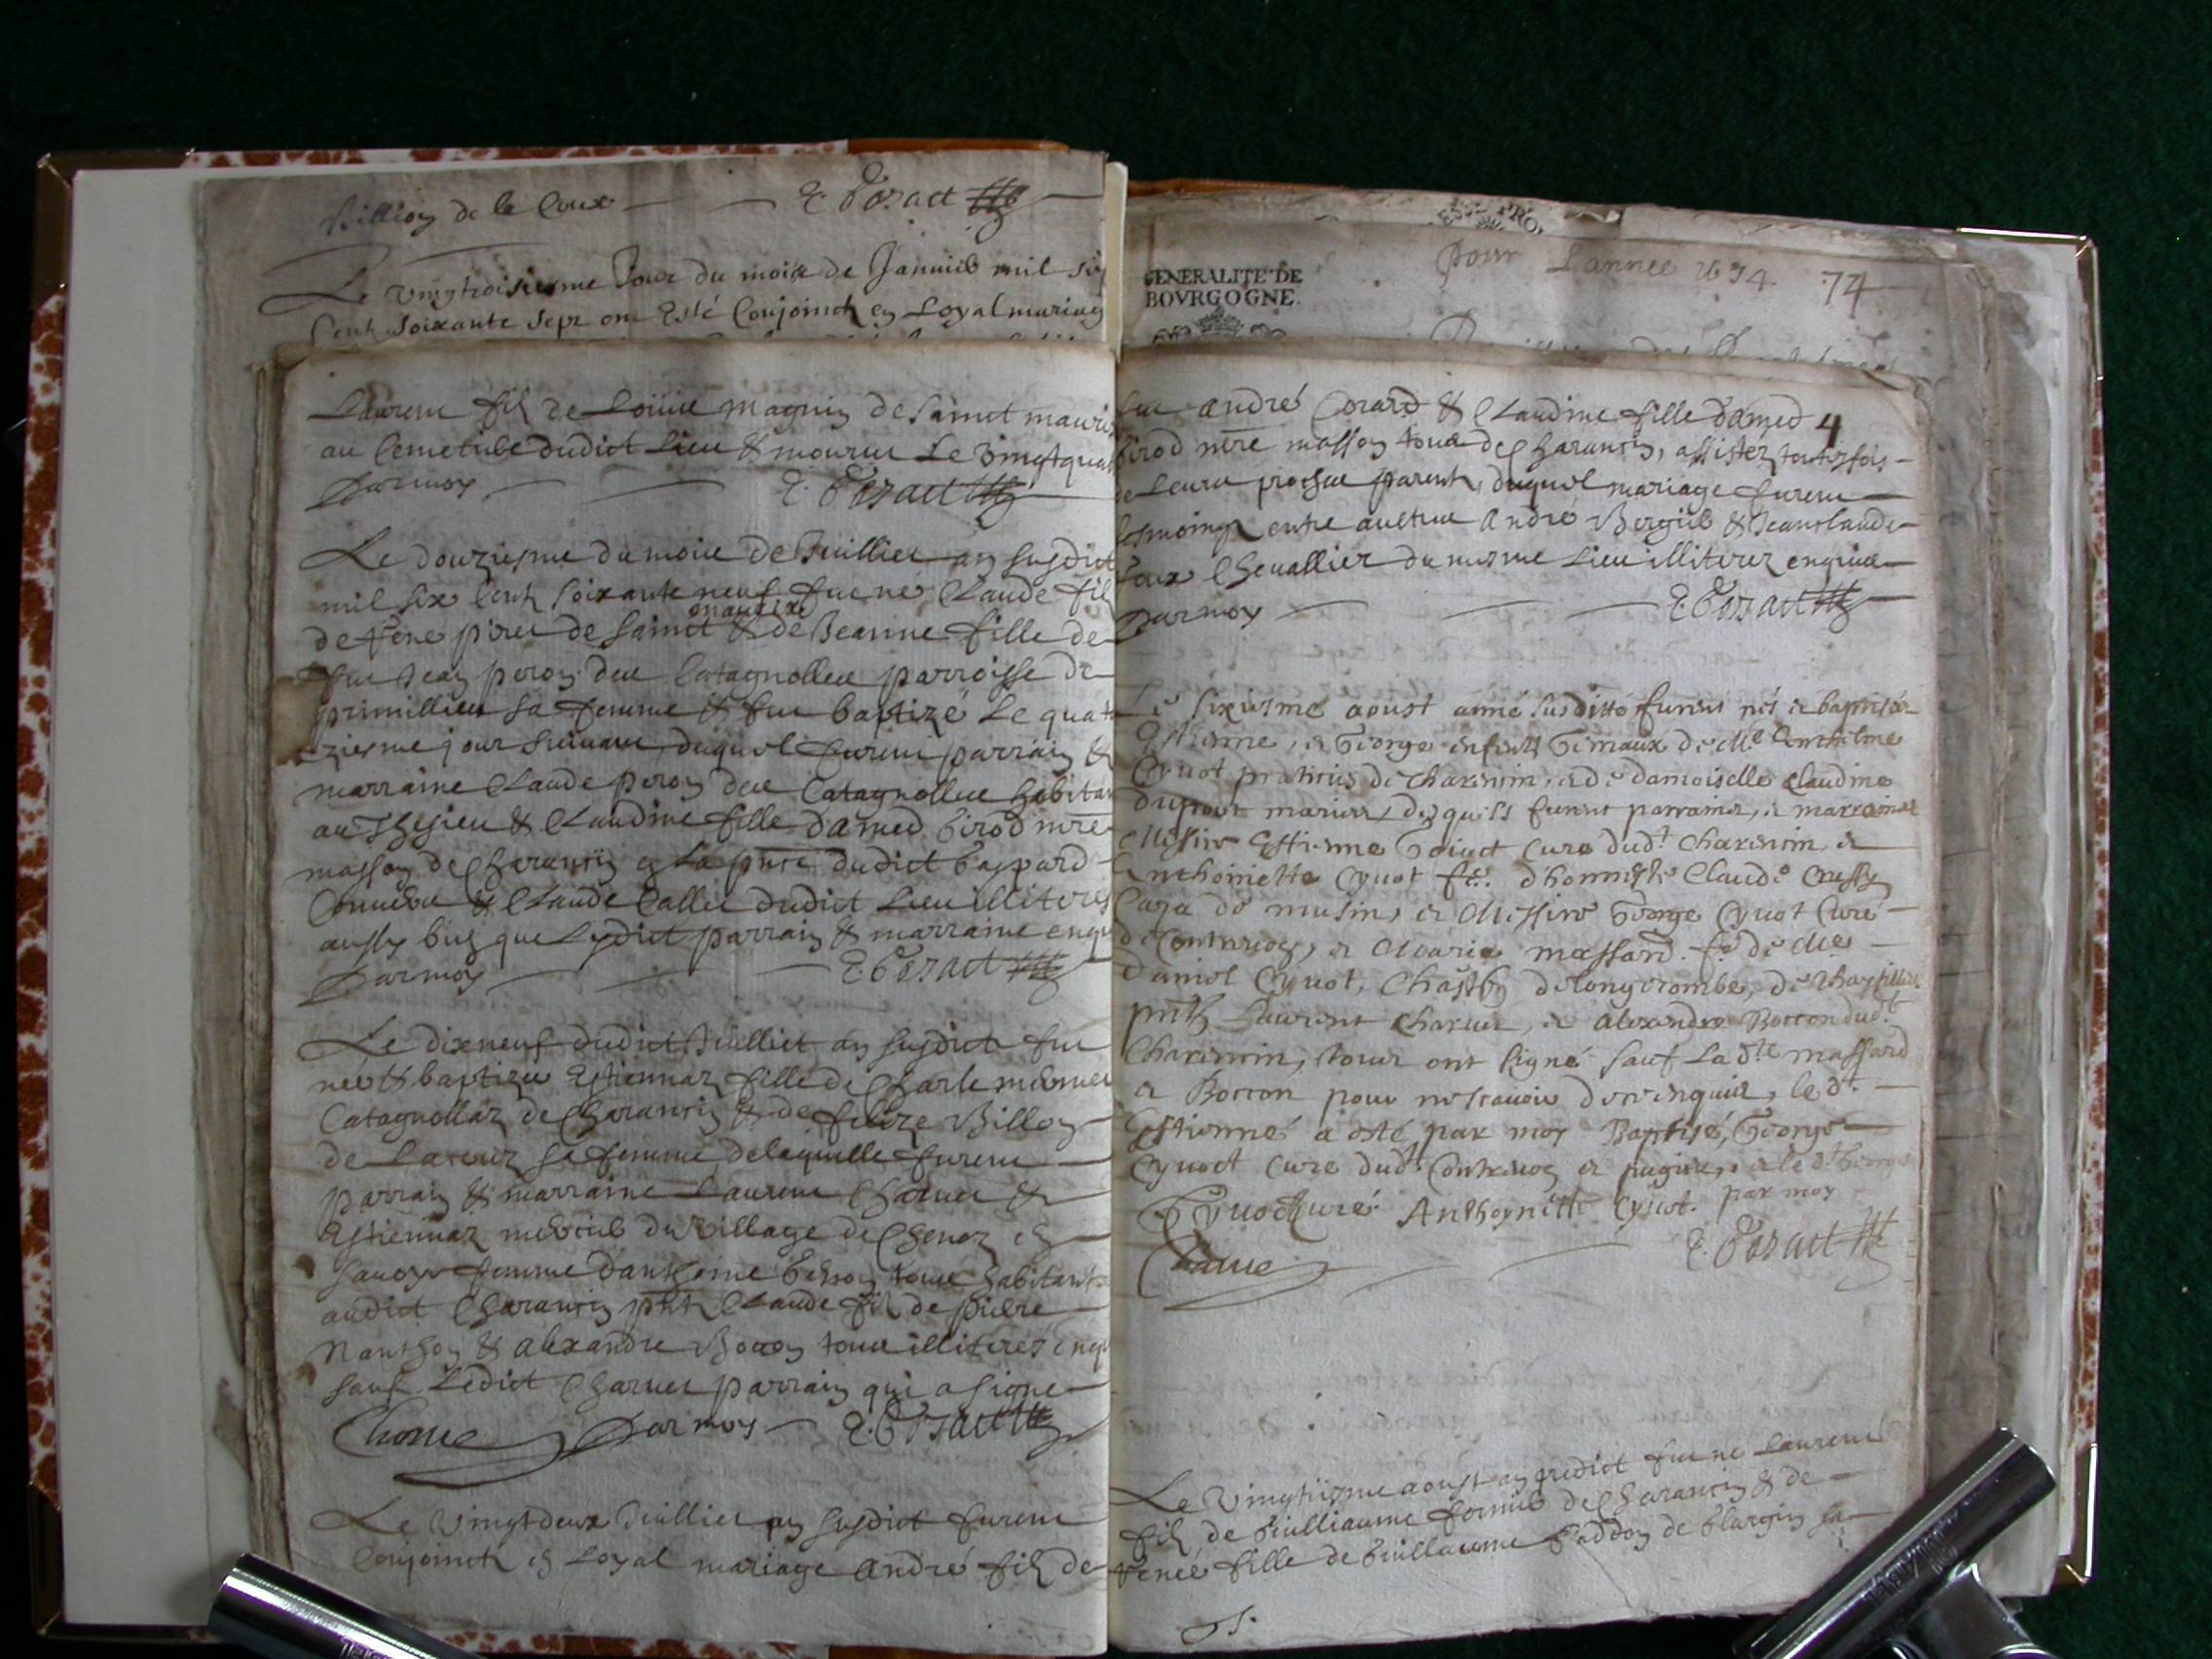 Billion de la Coux E. Gojact
Le vingtroisiesme Jour du moix de Januier mil six
Cent soixante sept ont Esté Conjoinct en Loyal mariag
Laurent filz de Louise magnin de Sainct mauris
au Cemetiere dudict Lieu & mourut Le vingtquat
Par moy E. Gojact
Le douziesme du moix de Juilliet an susdict
mil six Cent soixante neuf fut né Claude filz
maurixe
de René pirat de Sainct & de Jeanne fille de
feu Jean peron des Catagnolles parroisse de
primillieu sa femme & fut baptizé Le quato
rziesme jour suivant duquel furent parrain &
marraine Claude peron des Catagnolles habitan
au Thejieu & Claudine fille damed Girod mre
masson de Charancin en La pnce dudict Gaspard
& Claude Callet dudict Lieu illiteres
aussy bien que Lesdict parrain & marraine enqu
Par moy E. Gojact
Le dixneuf dudict Juilliet an susdict fut
née & baptizee Estiennaz fille de Charle
Catagnollaz de Charancin & de felize Billon
de Lacouz sa femme delaquelle furent
parrain & marraine Laurent Charuet &
Estiennaz mercier du village de Chenez en
savoye femme danthoine tous habitants
audict Charancin pnts Claude filz de pierre
Nanthon & alexandre Bocon tous illiteres enqu
sauf Ledict Charuet parrain qui a signe
Charue Par moy E. Gojact
Le vingtdeux Juilliet an susdict furent
Conjoinct en Loyal mariage André filz de
GENERALITE DE
BOVRGOGNE.
pour Lannee 1674 74
feu André Corard & Claudine fille damed 4
Girod mre masson tous de Charancin, assistez toutesfois
de Leurs proches parents, duquel mariage furent
tesmoings entre aultres André Bergier & Jeanclaude
Chevallier du mesme Lieu illiteres enquis
Par moy E. Gojact
Le sixiesme aoust anné susditte furent nés & baptisés
Estienne, & George enfants Gemaux de Me Anthelme
Cynot praticien de Charencin, & de damoiselle Claudine
dupont mariés desquels furent parrains, & marraines
Messire Estienne Gojact Curé dudt Charencin, &
Anthoinette Cynot fe. dhonneste Claude
de musin, & Messire George Cynot Curé
de Contrevoz, & Marie massard fe de Me
Daniel Cynot, Chastelain delongecombe, de Thezillieu
pnts Laurent Charuet, & Alexandre Boccon dudt
Charencin, tous ont signé sauf La dte massard
& Boccon pour ne scavoir de ce enquis, le dt
Estienne a esté par moy Baptisé, George
Cynoct Curé dudt Contrevoz & pugieu, & le dt George
G Cynoct Curé Anthoynette Cynot. par moy
Charue E. Gojact
Le vingtiesme aoust an predict fut né Laurent
filz de Guilliaume fornier de Charancin & de
Renée fille de Guillaume Gaddon de blargin sa